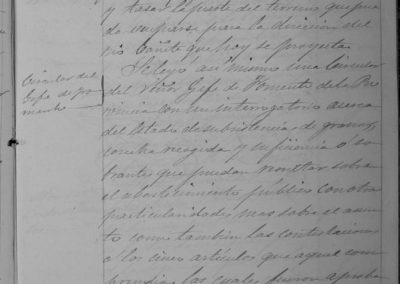 y tasar la parte del terreno que pue
da ocuparse para la direccion del
rio Cañete que hoy se proyecta.
Circular del
Gefe de Fo
mento
Se leyó asi mismo una Circular
del Señor Gefe de Fomento de la Pro
vincia con un interrogatorio acerca
del Estado de subsistencias de granos,
cosecha recogida y suficiencia ó so
brantes que puedan resultar sobre
el abastecimiento publico con otras
particularidades mas sobre el asun
to como tambien las contestaciones
á los cinco articulos que aquel com
prendia, las cuales fueron aproba